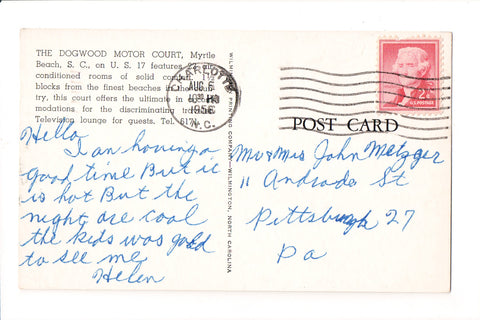 THE DOGWOOD MOTOR COURT, Myrtle
Beach, S. C., on U. S. 17 features
conditioned rooms of solid
blocks from the finest beaches in the
try, this court offers the ultimate in
modations for the discriminating
Television lounge for guests. Tel. 6171
CHARLOTTE
AUG 6
1956
N.C.
2¢
U.S. POSTAGE
WILMINGTON PRINTING COMPANY, WILMINGTON, NORTH CAROLINA
POST CARD
Hello
I am having a
good time But it
is hot But the
night are cool
the kids was glad
to see me
Helen
Mr & Mrs John Metzger
11 Andrade St
Pittsburgh 27
Pa